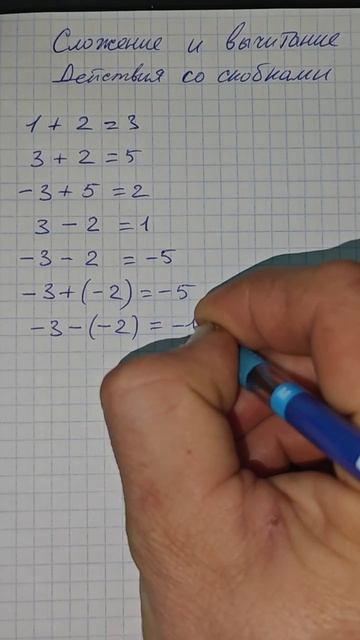 Сложение и вычитание
Действия со скобками
1 + 2 = 3
3 + 2 = 5
-3 + 5 = 2
3 - 2 = 1
-3 - 2 = -5
-3 + (-2) = -5
-3 - (-2) = -1